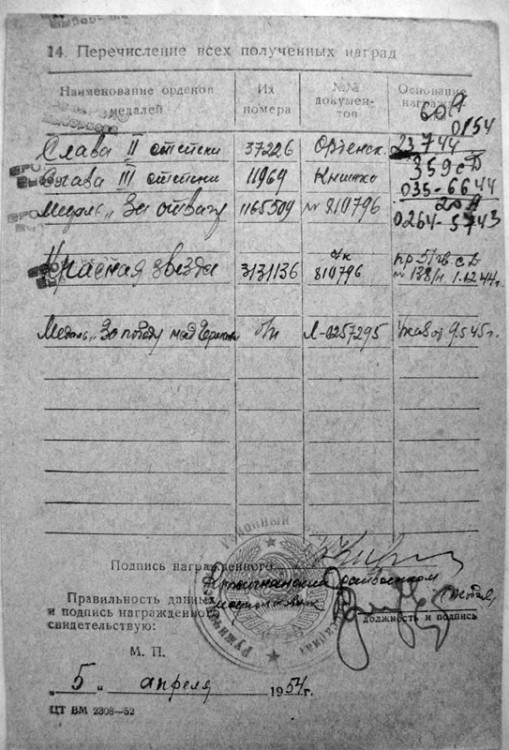 14. Перечисление всех полученных наград
Наименование орденов и медалей
Их номера
№№ документов
Основание награжд
60А
0154
Слава II степени 37226 Орденск. 23744
359 сД
Слава III степени 11969 Книжка 035-6644
20А
Медаль „За отвагу 1165509 № 810796 0264-5743
Красная звезда 3131136 о/к 810796 пр 51 гв. сД № 138/н 1.12.44г.
Медаль „За победу над Герман б/н Л-0257295 Указ от 9.5.45г.
Подпись награжденного
райвоенком
Правильность данных
и подпись награжденного
свидетельствую:
должность и подпись
М. П.
„ 5 „ апреля 1954 г.
ЦТ ВМ 2308—52